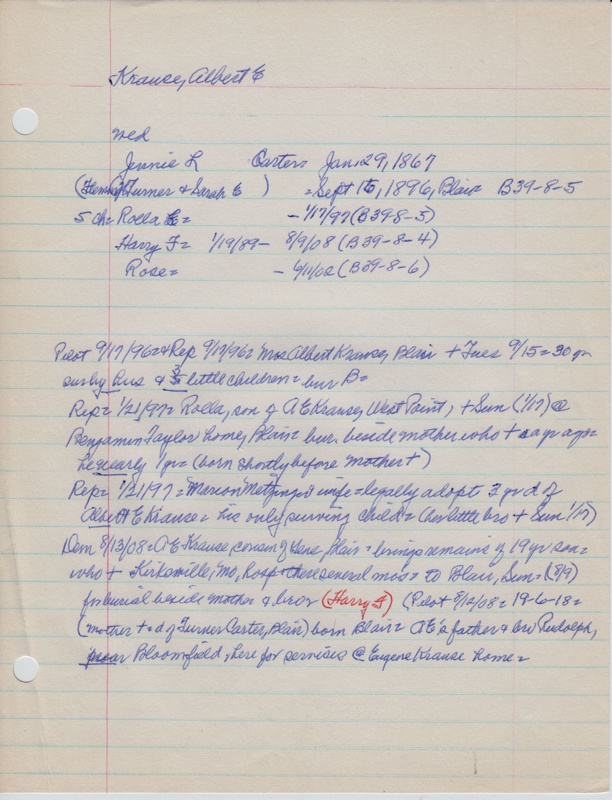 Krause, Albert E
wed
Jennie L Carter= Jan. 29, 1867
( Turner & Sarah E ) = Sept 15, 1896, Blair B39-8-5
5 ch= Rolla E= - 1/17/97 (B39-8-5)
Harry F= 1/19/89- 8/9/08 (B39-8-4)
Rose= - 6/11/02 (B39-8-6)
Pilot 9/17/96=& Rep 9/17/96= Mrs Albert Krause, Blair + Tues 9/15=30 yr
sur by hus & 3 little children= bur B=
Rep= 1/21/97= Rolla, son of A E Krause, West Point, + Sun (1/17) @
Benjamin Taylor home, Blair= bur beside mother who + a yr ago=
he nearly 1 yr= (born shortly before mother +)
Rep= 1/21/97= Marion Metzinger & wife= legally adopt 3 yr d of
Albert E Krause= his only surviving child= (her little bro + Sun 1/17)
Dem 8/13/08= A E Krause, cousin of here, Blair= brings remains of 19 yr son=
who + Kirksville, Mo, Hosp there several mos= to Blair, Sun= (8/9)
for burial beside mother & bros (Harry F) (Pilot 8/12/08= 19-6-18=
(mother + = d of Turner Carter, Blair) born Blair= A E's father & bro Rudolph,
near Bloomfield, here for services @ Eugene Krause home=